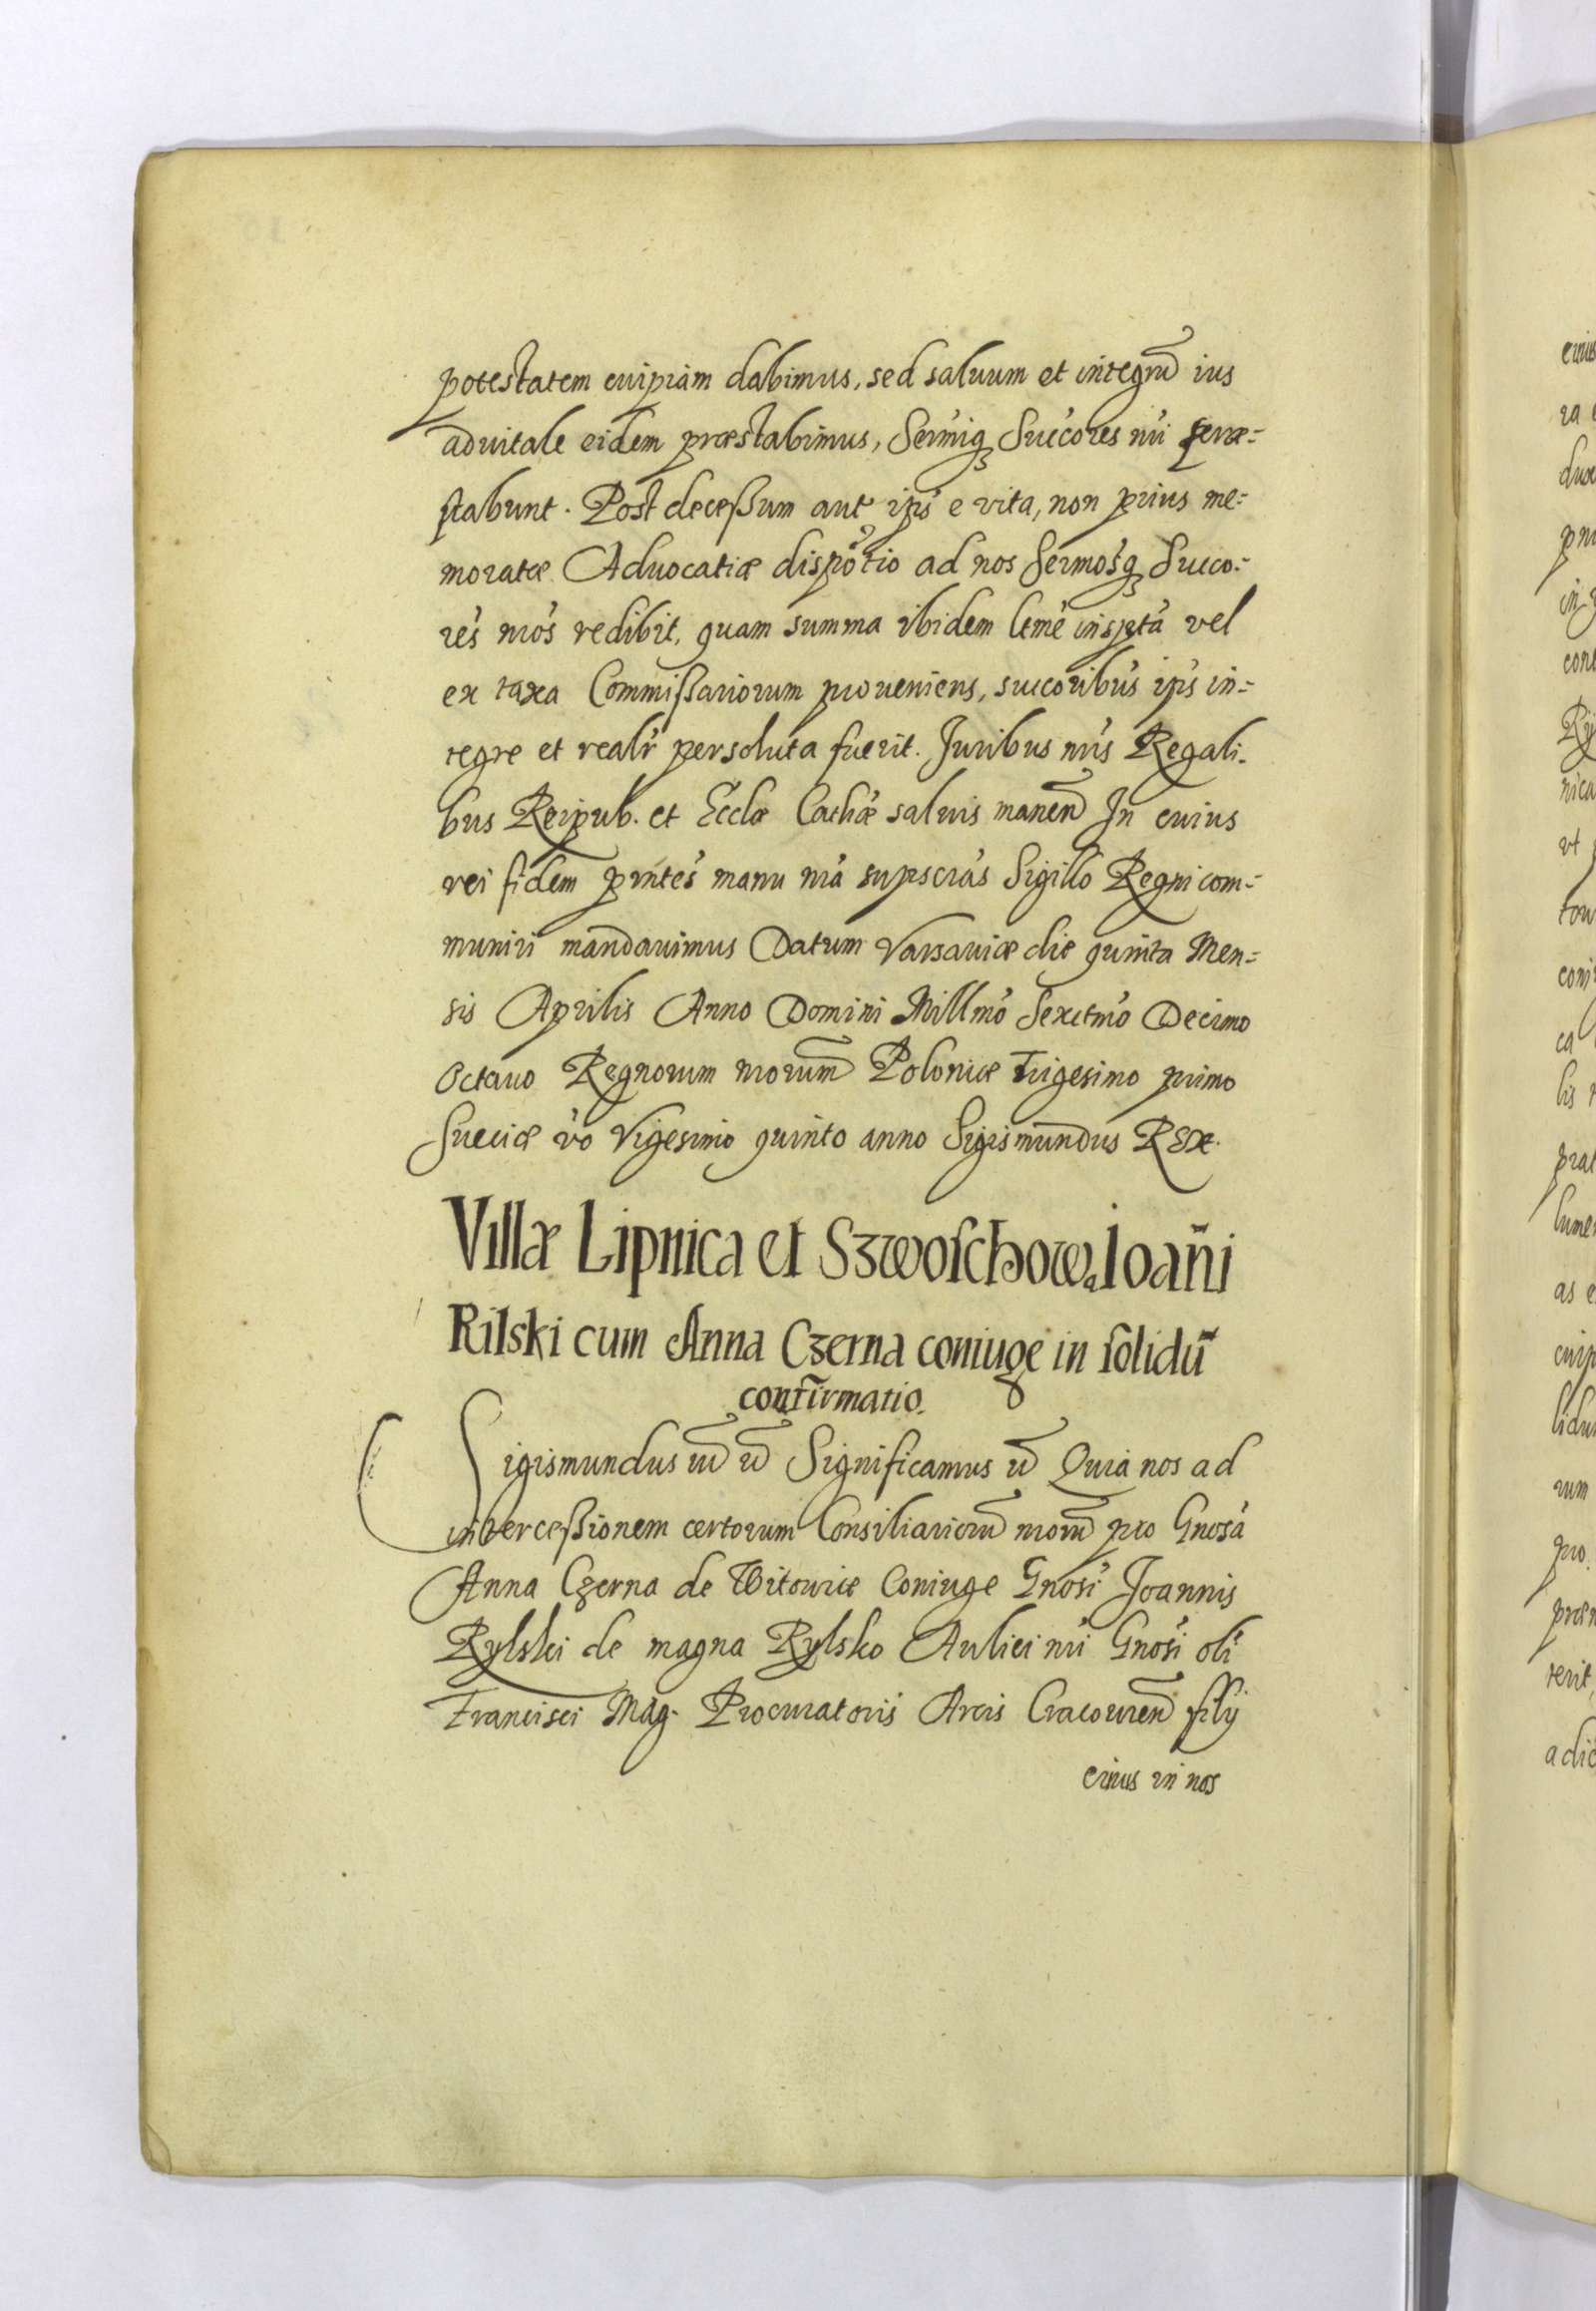 potestatem cuipiam dabimus, sed saluum et integrū ius
aduitale eidem præstabimus, Sermiq̃ Succ̃ores nr̃i præ=
stabunt. Post decessum aut̃ ips̃ e vita, non prius me=
moratæ Aduocatiæ dispõtio ad nos Sermosq̃ Succo=
res nros redibit, quam summa ibidem ltme inspta vel
ex taxa Commissariorum proueniens, succoribus ips̃ in=
tegre et realr̃ persoluta fuerit. Juribus nr̃is Regali=
bus Reipub. et Eccl̃æ Cathæ saluis manen̄ In cuius
rei fidem prñtes manu nr̃a supscras Sigillo Regni com=
muniri mandauimus Datum Varsauiæ die quinta Men=
sis Aprilis Anno Domini Millmo Sexctmo Decimo
Octauo Regnorum nrorum Poloniæ Trigesimo primo
Sueciæ vo Vigesimo quinto anno Sigismundus REx.
Villæ Lipnica et Szwoschowa Ioañi
Rilski cum Anna Czerna coniuge in solidū
confirmatio.
Sigismundus iū ū Significamus ū Quia nos ad
intercessionem certorum Consiliariorū nrorū pro Gnosa
Anna Czerna de Witowice Coniuge Gnosi Joannis
Rylski de magna Rylsko Aulici nri Gnosi oli
Francisci Mag. Procuratoris Arcis Cracouien̄ filij
eius in nos